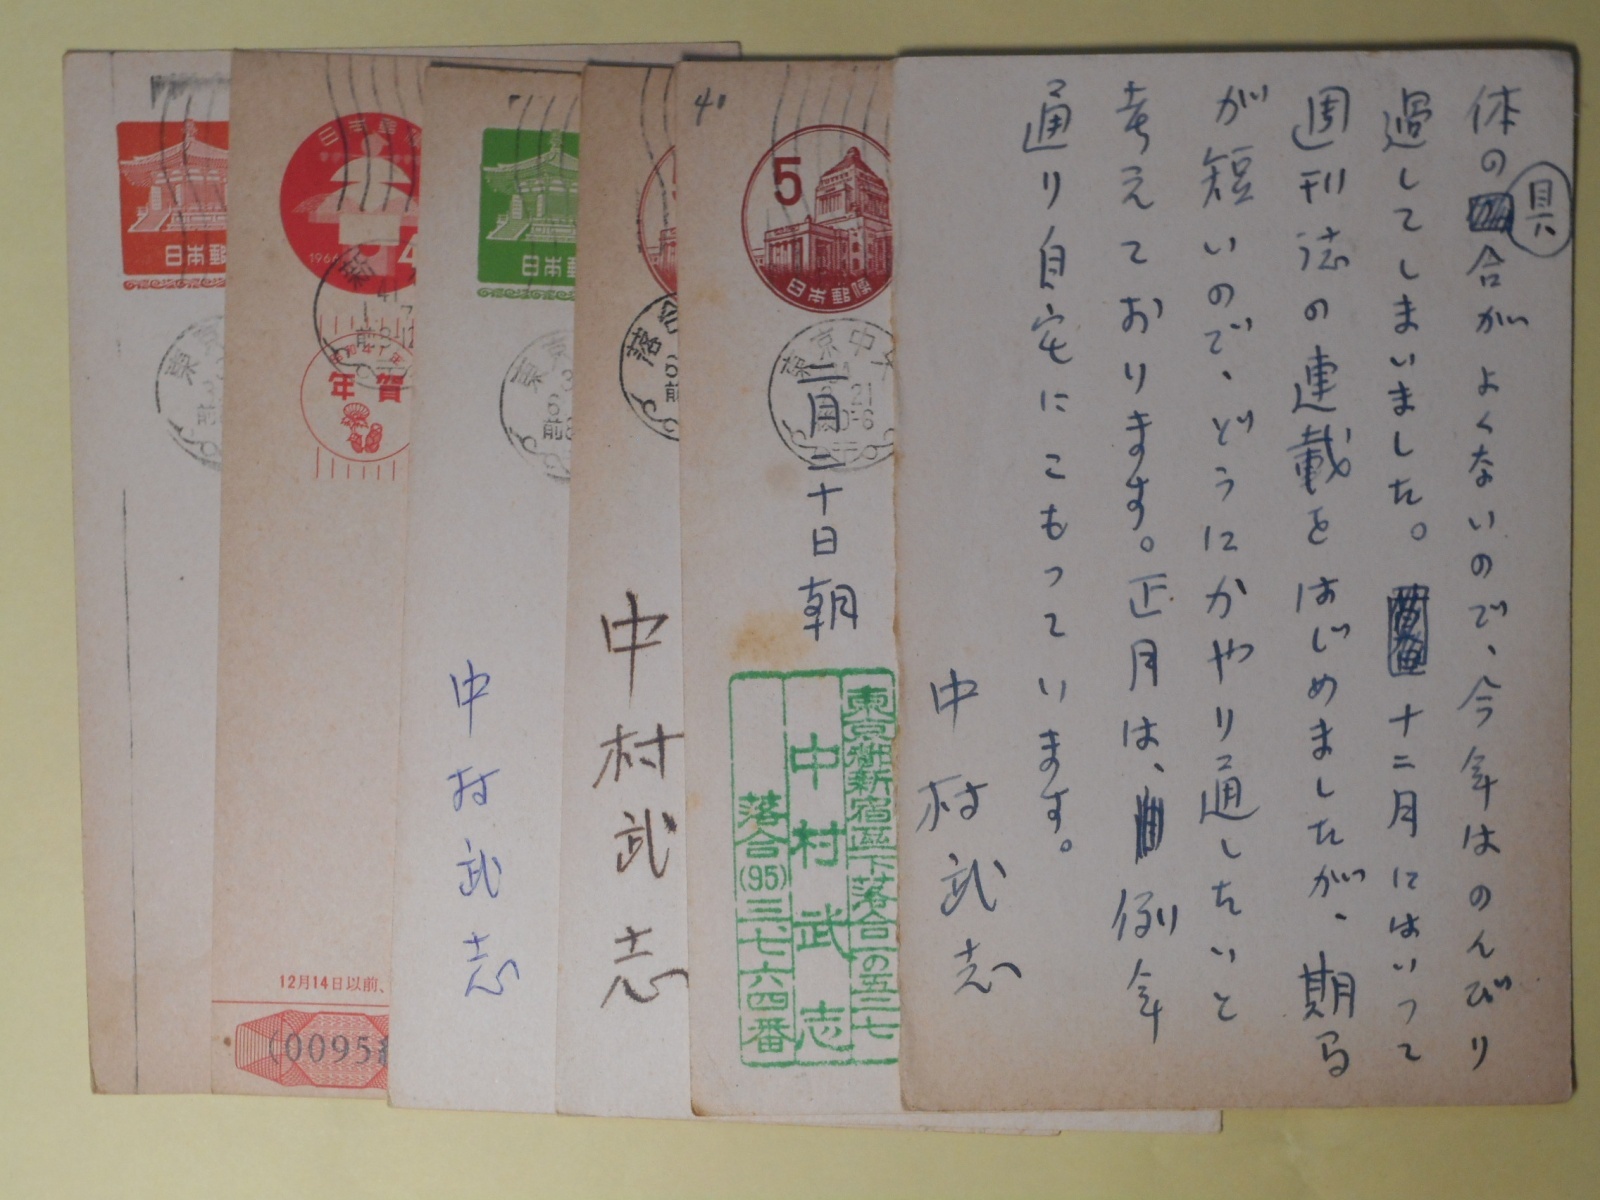 体の具合がよくないので、今年はのんびり
過してしまいました。十二月にはいって
週刊誌の連載をはじめましたが、期局
が短いので、どうにかやり通したいと
考えております。正月は、例年
通り自宅にこもっています。
中村武志
5
日本郵便
41
東京中
21
二月二十日朝
東京都新宿区下落合一の五二七
中村武志
落合(95)三、七六四番
落合
前
中村武志
日本郵
東京
3
6
前8
中村武志
日本郵
1966
4
新
41
前
年賀
12月14日以前、
(0095組
日本郵
東
前